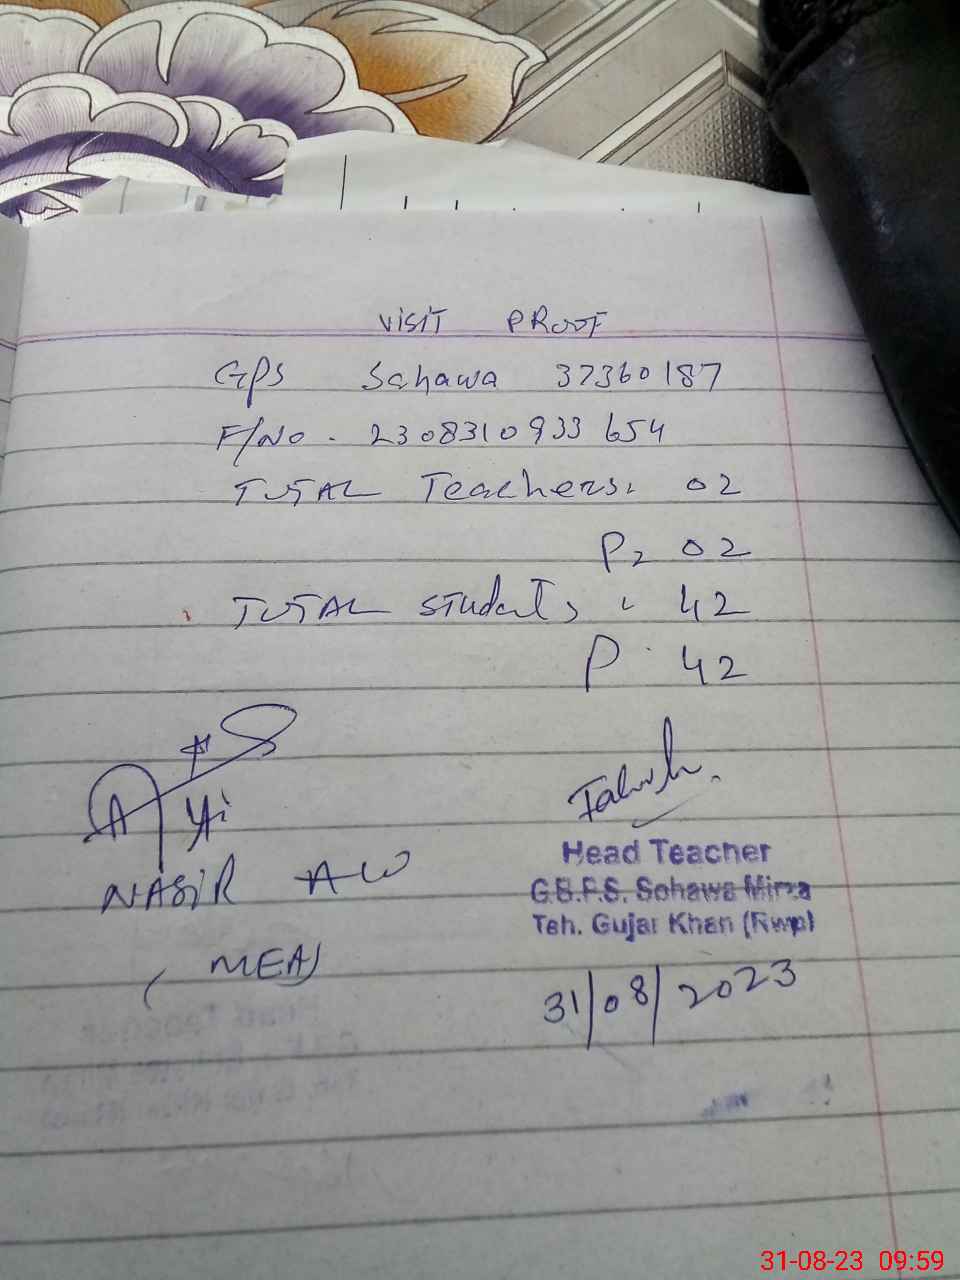 VISIT PROOF
GPS Sahawa 37360187
F/No. 2308310933654
TOTAL Teachers: 02
P= 02
TOTAL students : 42
P 42
NASIR ALI
(MEA)
Head Teacher
G.B.P.S. Sohawa Mirza
Teh. Gujar Khan (Rwp)
31/08/2023
31-08-23 09:59